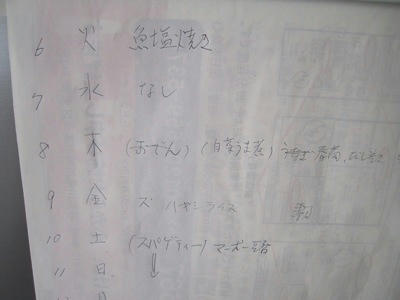 6 火 魚塩焼き
7 水 なし
8 木 (おでん) (白菜うま煮) 春菊
9 金 ズ ハヤシライス
10 土 (スパゲティー) マーボー豆腐
11 日 ↓
月